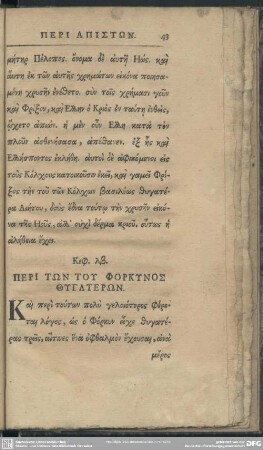 ΠΕΡΙ ΑΠΙΣΤΩΝ. 43
μήτηρ Πέλοπος. ὄνομα δὲ αὐτῇ Ηώς. καὶ
αὕτη ἐκ τῶν αὐτῆς χρημάτων εἰκόνα ποιησα-
μένη χρυσῆν ἐνέθετο. σὺν τοῖς χρήμασι γοῦν
καὶ Φρίξον, καὶ Ελλην ὁ Κριὸς ἐν ταύτῃ ἐνθεὶς,
ᾤχετο ἀπιών. ἡ μὲν οὖν Ελλη κατὰ τὸν
πλοῦν ἀσθενήσασα, ἀπέθανεν. ἐξ ἧς καὶ
Ελλήσποντος ἐκλήθη. αὐτοὶ δὲ ἀφικόμενοι εἰς
τοὺς Κόλχους κατοικοῦσιν ἐκεῖ, καὶ γαμεῖ Φρί-
ξος τὴν τοῦ τῶν Κόλχων βασιλέως θυγατέ-
ρα Αιήτου, δοὺς ἕδνα τούτῳ τὴν χρυσῆν εἰκό-
να τῆς Ηοῦς, ἀλλ' οὐχὶ δέρμα κριοῦ. οὕτως ἡ
ἀλήθεια ἔχει.
Κεφ. λβ.
ΠΕΡΙ ΤΩΝ ΤΟΥ ΦΟΡΚΥΝΟΣ
ΘΥΓΑΤΕΡΩΝ.
Καὶ περὶ τούτων πολὺ γελοιότερος φέρε-
ται λόγος, ὡς ὁ Φόρκυν εἶχε θυγατέ-
ρας τρεῖς, αἵτινες ἕνα ὀφθαλμὸν ἔχουσαι, ἀνὰ
μέρος